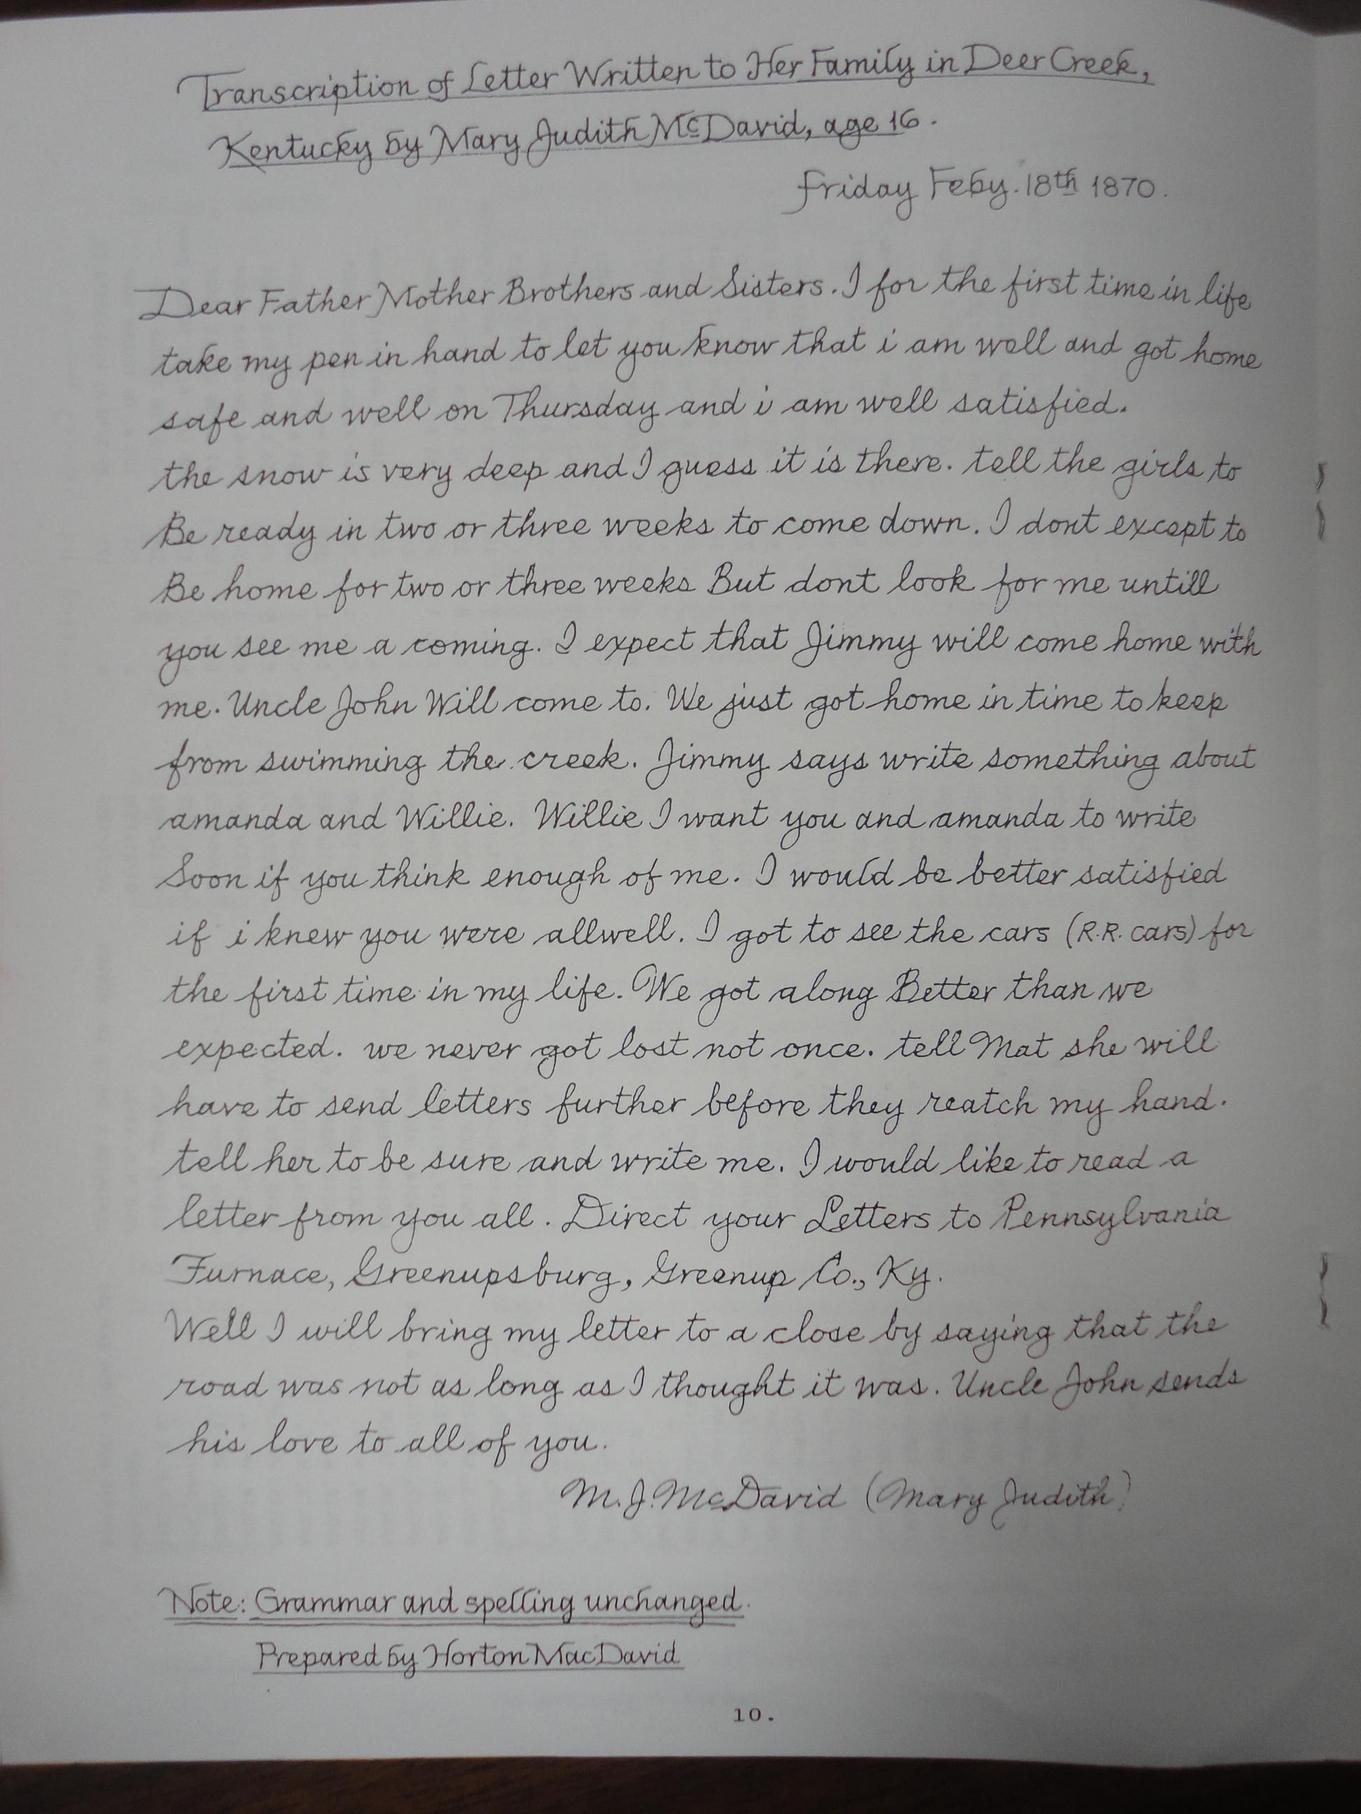 Transcription of Letter Written to Her Family in Deer Creek,
Kentucky by Mary Judith McDavid, age 16.
Friday Feby. 18th 1870.
Dear Father Mother Brothers and Sisters. I for the first time in life
take my pen in hand to let you know that i am well and got home
safe and well on Thursday and i am well satisfied.
the snow is very deep and I guess it is there. tell the girls to
Be ready in two or three weeks to come down. I dont except to
Be home for two or three weeks But dont look for me untill
you see me a coming. I expect that Jimmy will come home with
me. Uncle John Will come to. We just got home in time to keep
from swimming the creek. Jimmy says write something about
amanda and Willie. Willie I want you and amanda to write
Soon if you think enough of me. I would be better satisfied
if i knew you were allwell. I got to see the cars (R.R. cars) for
the first time in my life. We got along Better than we
expected. we never got lost not once. tell Mat she will
have to send letters further before they reatch my hand.
tell her to be sure and write me. I would like to read a
letter from you all. Direct your Letters to Pennsylvania
Furnace, Greenupsburg, Greenup Co., Ky.
Well I will bring my letter to a close by saying that the
road was not as long as I thought it was. Uncle John sends
his love to all of you.
M.J. McDavid (Mary Judith)
Note: Grammar and spelling unchanged.
Prepared by Horton MacDavid
10.